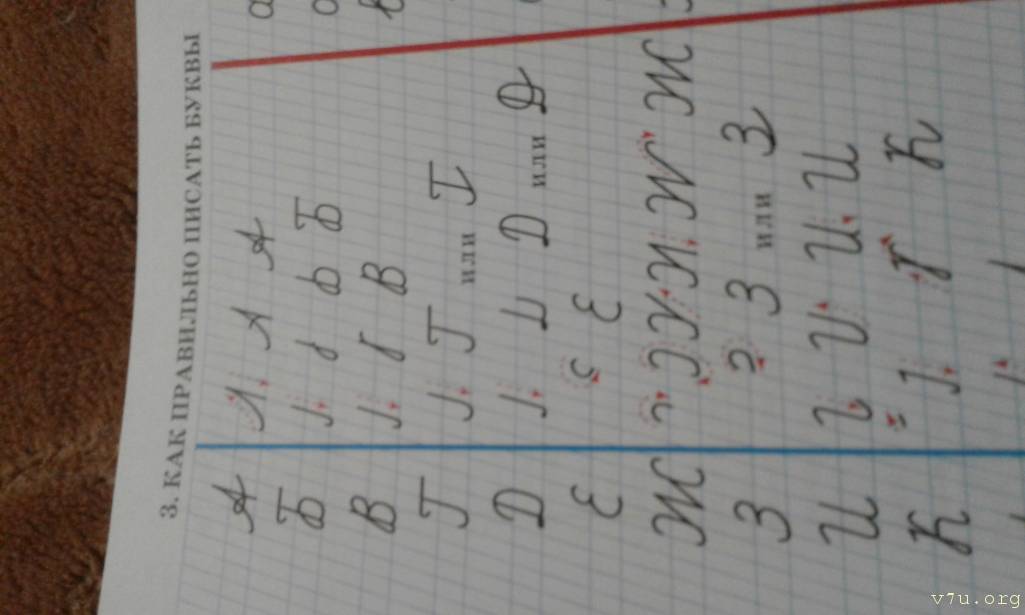 3. КАК ПРАВИЛЬНО ПИСАТЬ БУКВЫ
А А
Б Б
В В
Г Г или Г
Д Д или Д
Е Е
Ж Ж
З З или З
И И И
К К
v7u.org